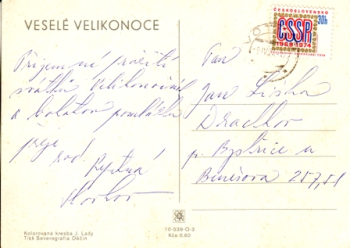 VESELÉ VELIKONOCE
Příjemné prožití
svátků Velikonočních
a bohatou pomlázku
přeje
rod.
ČESKOSLOVENSKO
ČSSR
1969 1974
30h
Pan
Jan Liška
Drachkov
p. Bystřice u
Benešova 257,51
Kolorovaná kresba J. Lady
Tisk Severografia Děčín
10-539-O-3
Kčs 0,60